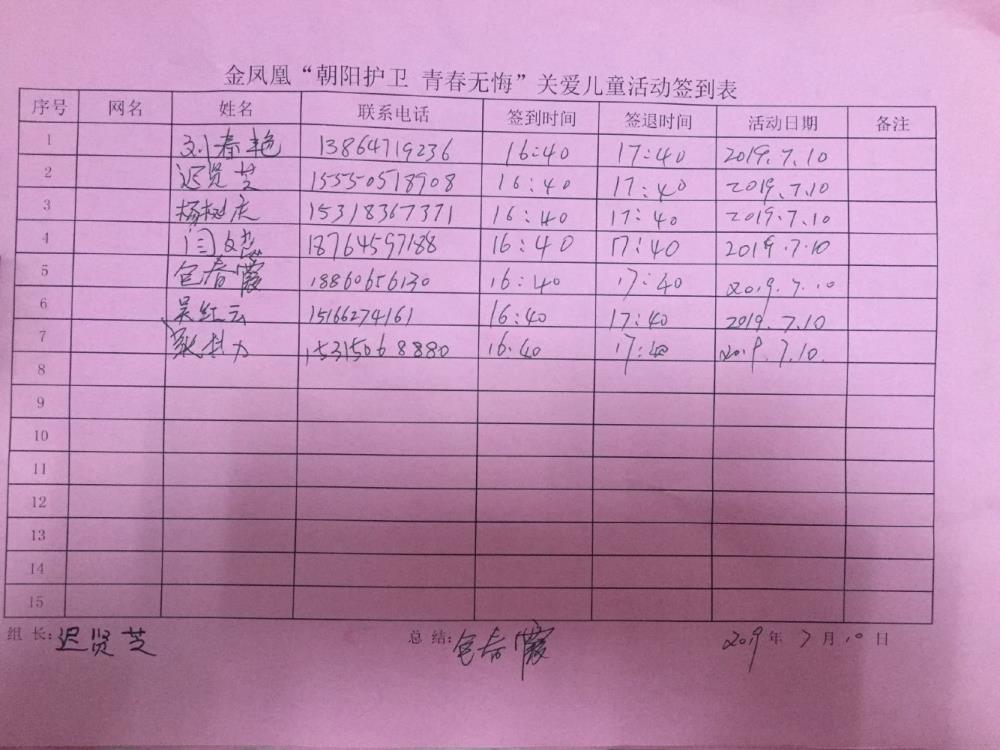 金凤凰“朝阳护卫 青春无悔”关爱儿童活动签到表
序号 网名 姓名 联系电话 签到时间 签退时间 活动日期 备注
1 刘春艳 13864719236 16:40 17:40 2019.7.10
2 迟贤芝 15550518908 16:40 17:40 2019.7.10
3 杨树庆 15318367371 16:40 17:40 2019.7.10
4 闫 18764597188 16:40 17:40 2019.7.10
5 包春霞 18860656130 16:40 17:40 2019.7.10
6 吴红云 15166274161 16:40 17:40 2019.7.10
7 15315068880 16:40 17:40 2019.7.10
8
9
10
11
12
13
14
15
组 长:迟贤芝 总 结:包春霞 2019年 7月10日